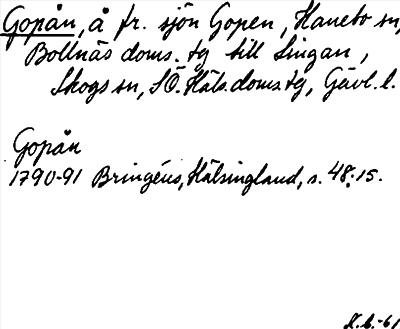 Gopån, å fr. sjön Gopen, Hanebo sn,
Bollnäs doms. tg till Lingan,
Skogs sn, SÖ. Häls. doms. tg, Gävl. l.
Gopån
1790-91 Bringéus, Hälsingland, s. 48:15.
H.b.-61